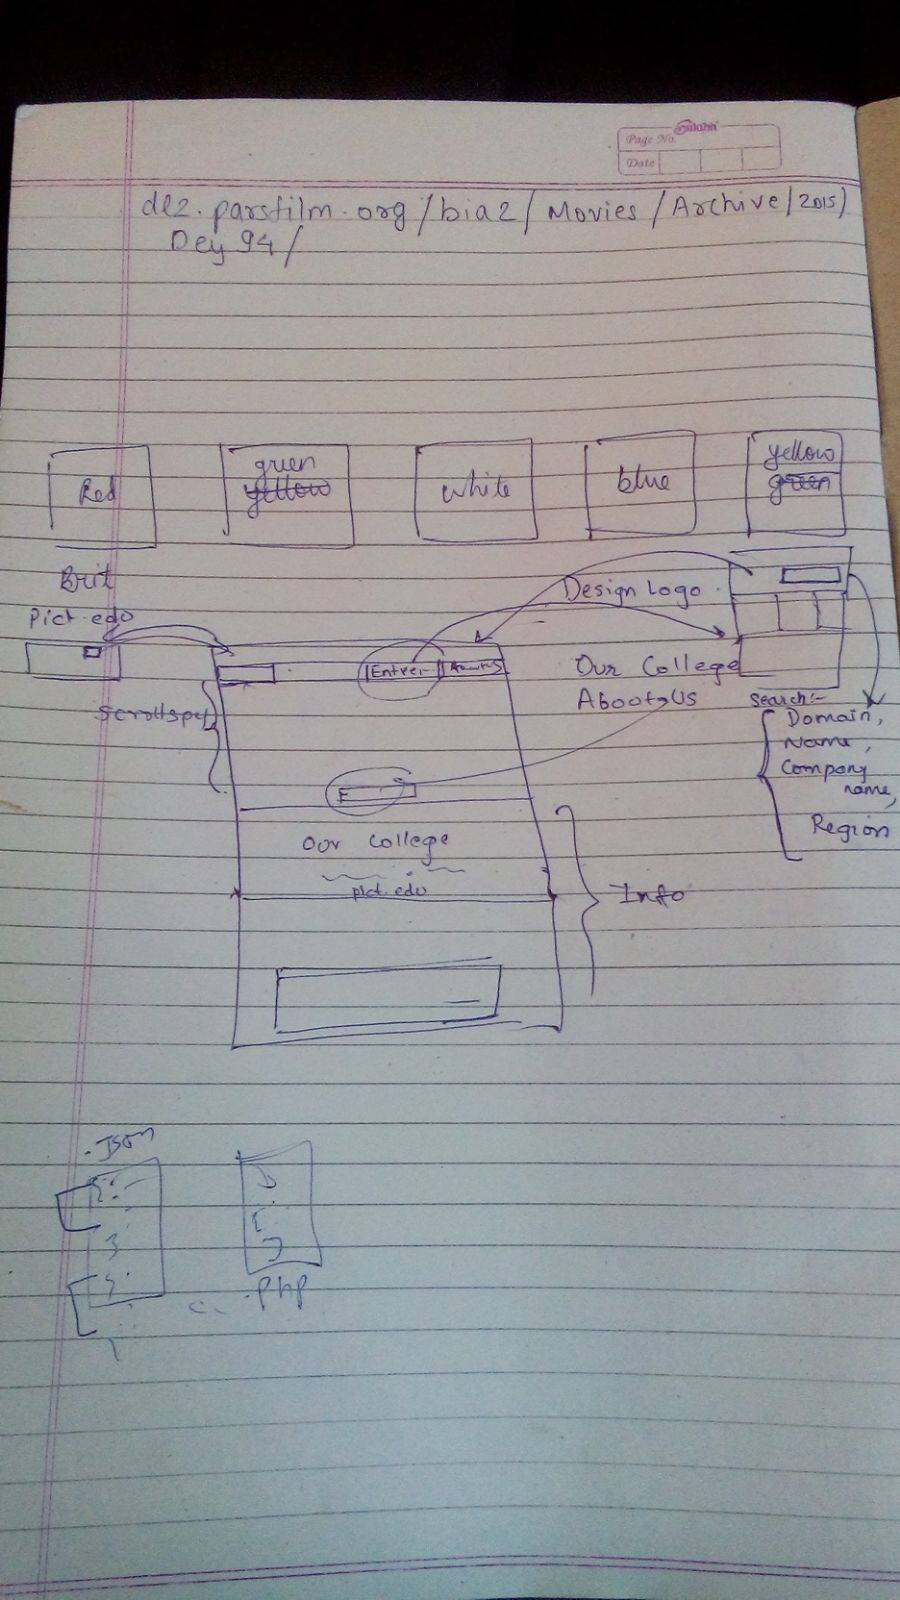 Page No.
Date
dl2.parsfilm.org/bia2/Movies/Archive/2015/
Dey 94/
Red
green
yellow
white
blue
yellow
green
Pict.edu
Design Logo.
Our College
About Us
scrollspy
Search:-
Domain,
Name,
Company
name,
Region
Our College
pict.edu
Info
.Json
.php